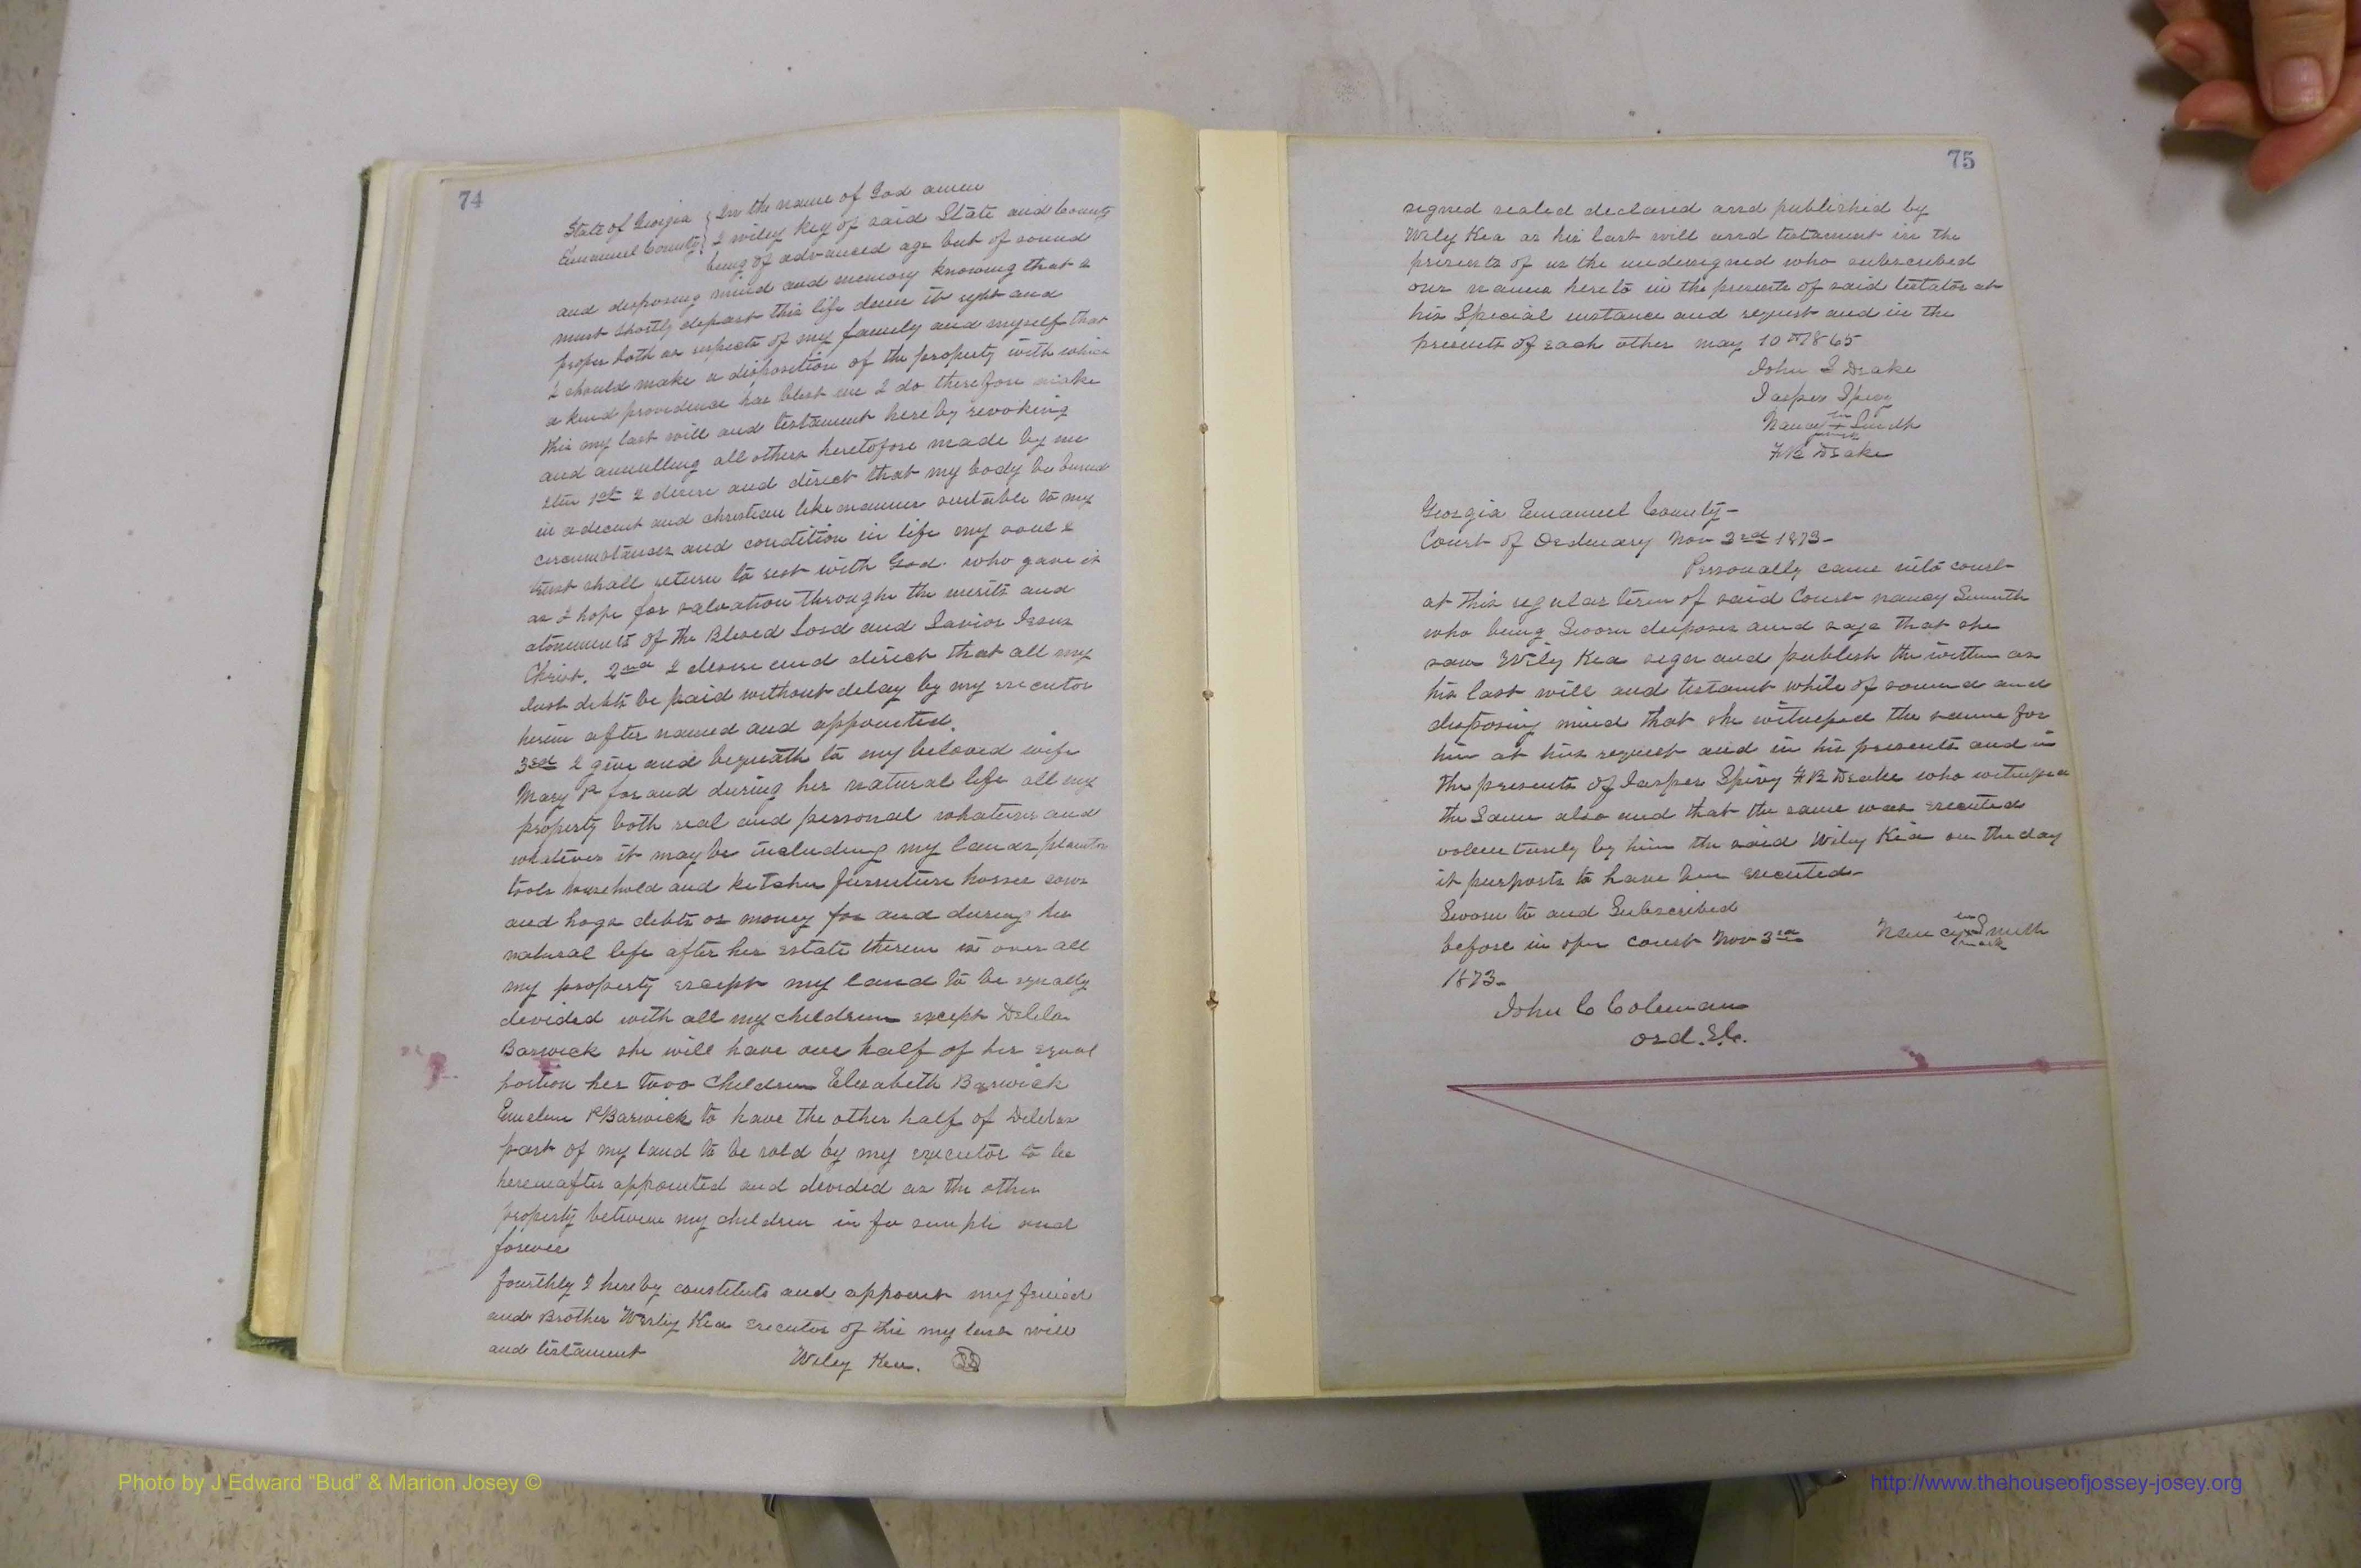 74
State of Georgia { In the name of God amen
Emanuel County { I wiley Key of said State and County
being of advanced age but of sound
and disposing mind and memory knowing that I
must shortly depart this life deem it right and
proper both as respects of my family and myself that
I should make a disposition of the property with which
a kind providence has blest me I do therefore make
this my last will and testament hereby revoking
and annulling all others heretofore made by me
Item 1st I desire and direct that my body be buried
in a decent and christian like manner suitable to my
circumstances and condition in life my soul I
trust shall return to rest with God. who gave it
as I hope for salvation through the merits and
atonements of the Blesed Lord and Savior Jesus
Christ. 2nd I desire and direct that all my
Just debts be paid without delay by my executor
herein after named and appointed.
3rd I give and bequeath to my beloved wife
Mary P for and during her natural life all my
property both real and personal whatever and
whatever it may be including my lands
tools household and Kitchen furniture horses cows
and hogs debts or money for and during her
natural life after her estate therein is over all
my property except my land to be equally
devided with all my children except Delila
Barwick she will have one half of her equal
portion her two children Elizabeth Barwick
Emelin P Barwick to have the other half of Delilas
part of my land to be sold by my executor to be
hereinafter appointed and devided as the other
property between my children in fee simple and
forever
fourthly I hereby constitute and appoint my friend
and Brother Wesley Kea Executor of this my last will
and testament Wiley Kea. LS
75
signed sealed declared and published by
Wily Kea as his last will and testament in the
presents of us the undersigned who subscribed
our names hereto in the presents of said testator at
his Special instance and request and in the
presents of each other may 10th 1865
John I Drake
Jasper Spivy
Nancy her + mark Smith
F B Drake
Georgia Emanuel County-
Court of Ordinary Nov 3rd 1873-
Personally came into court
at this regular term of said Court nancy Smith
who being Sworn deposes and says that she
saw Wily Kea sign and publish the within as
his last will and testamt while of sound and
disposing mind that she witnessed the same for
him at his request and in his presents and in
the presents of Jasper Spivy F B Drake who witnessed
the Same also and that the same was executed
voluntarily by him the said Wiley Kea on the day
it purports to have been executed-
Sworn to and Subscribed
before in open court Nov 3rd Nancy her x mark Smith
1873-
John C Coleman
ord. E.C.
Photo by J Edward “Bud” & Marion Josey ©
http://www.thehouseofjossey-josey.org